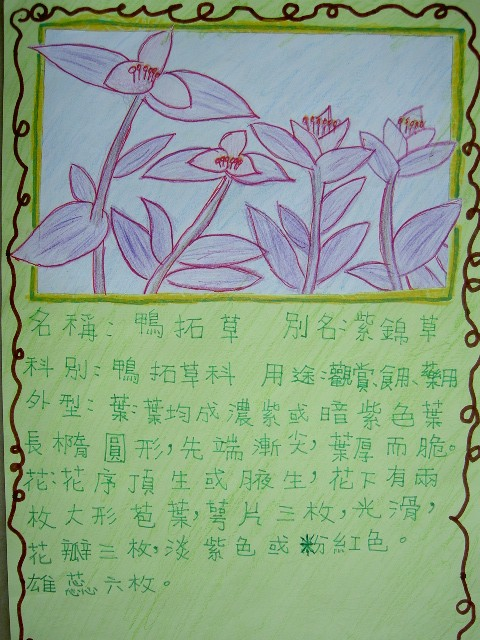 名稱：鴨拓草　別名：紫錦草
科別：鴨拓草科　用途：觀賞、食用、藥用
外型：葉：葉均成濃紫或暗紫色葉
長橢圓形，先端漸尖，葉厚而脆。
花：花序頂生或腋生，花下有兩
枚大形苞葉，萼片三枚，光滑，
花瓣三枚，淡紫色或粉紅色。
雄蕊六枚。